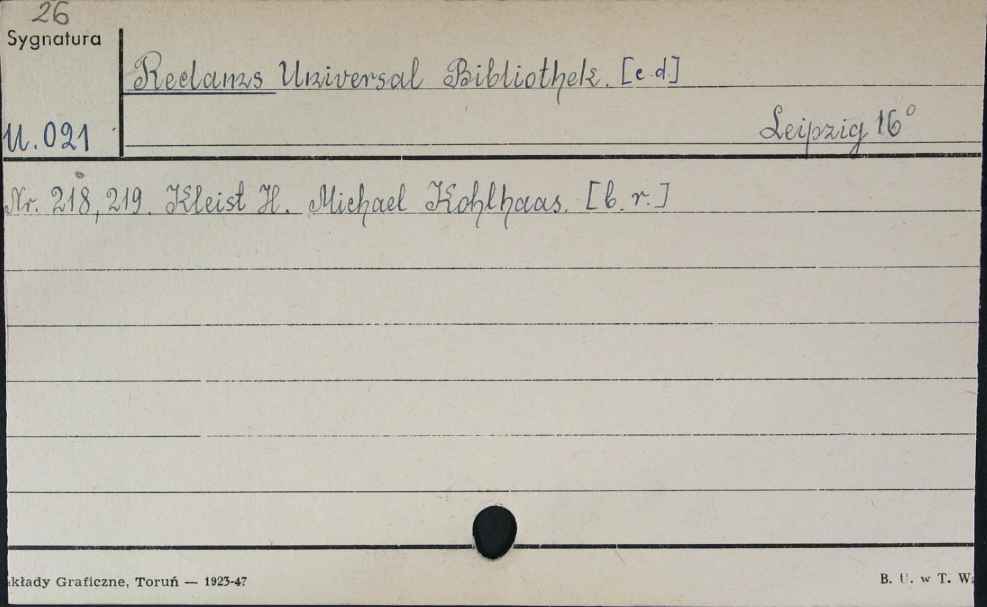 26
Sygnatura
Reclams Universal Bibliothek. [c.d.]
U.021
Leipzig 16°
Nr. 218, 219. Kleist H. Michael Kohlhaas. [b. r.]
kłady Graficzne, Toruń — 1923-47
B. U. w T. W